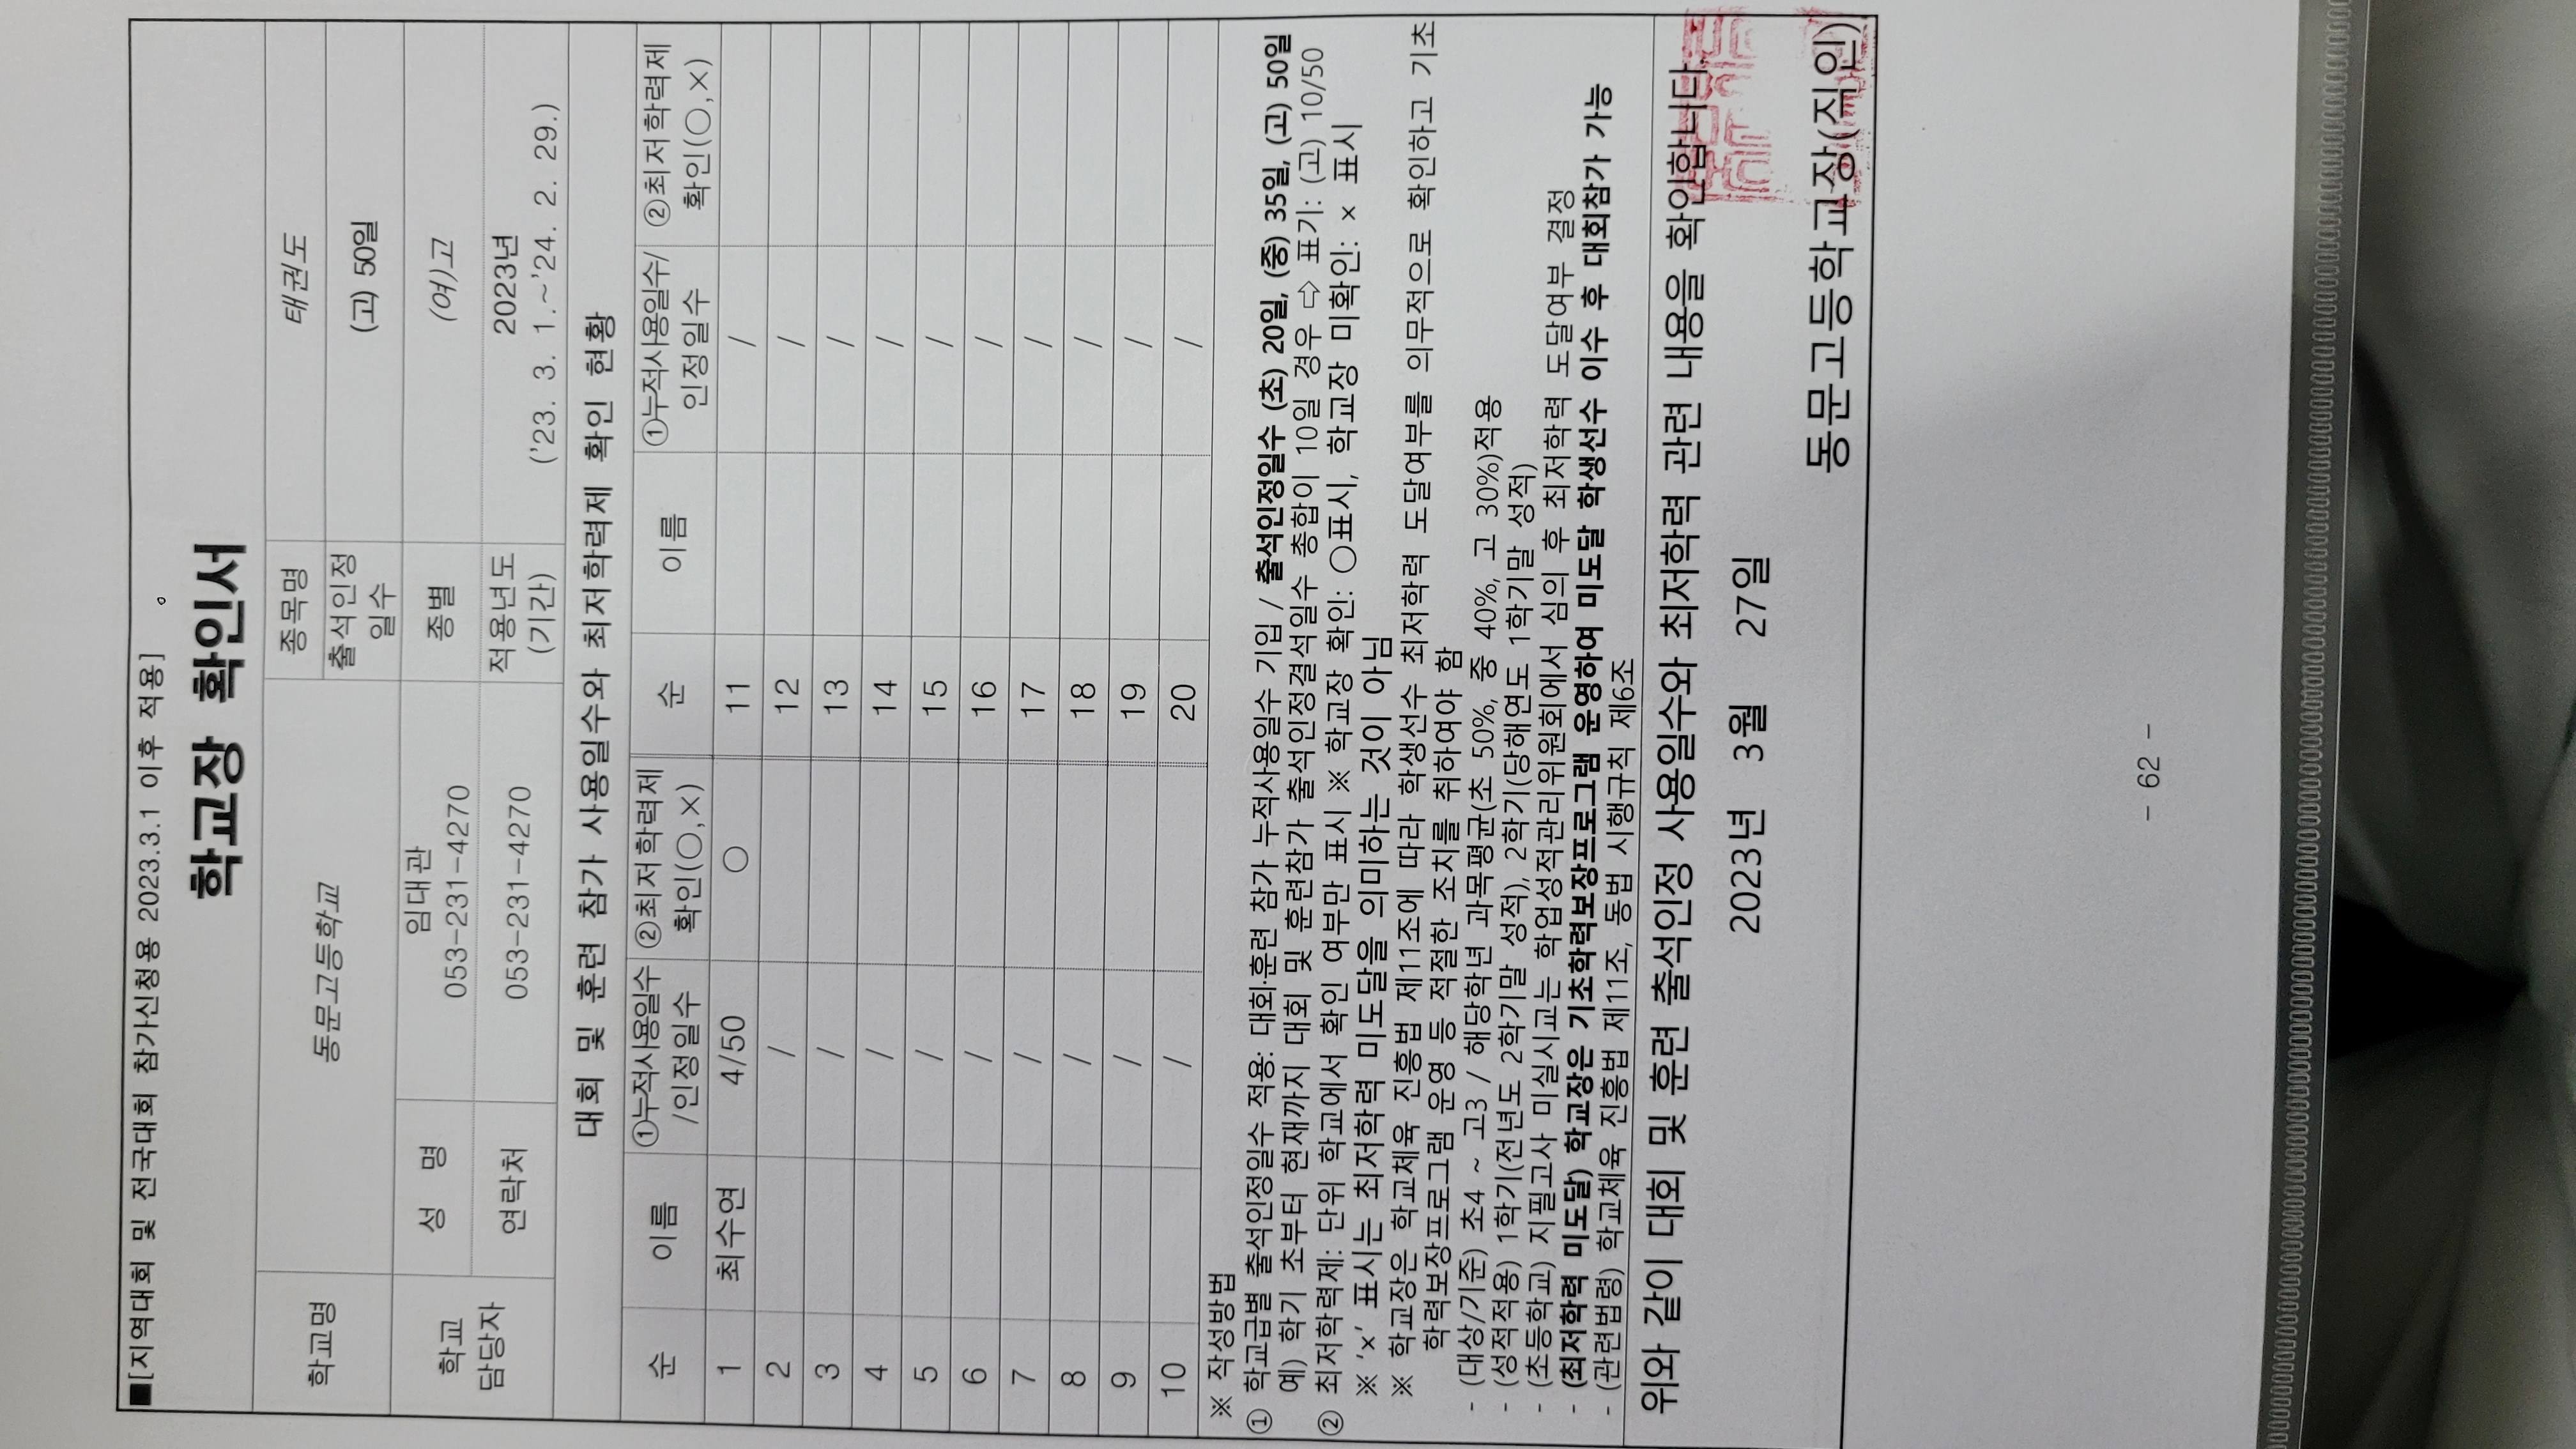 ■[지역대회 및 전국대회 참가신청용 2023.3.1 이후 적용]
학교장 확인서
학교명 동문고등학교 종목명 태권도
출석인정 일수 (고) 50일
학교 담당자 성 명 임대관 053-231-4270 종별 (여)고
연락처 053-231-4270 적용년도 (기간) 2023년 ('23. 3. 1.~'24. 2. 29.)
대회 및 훈련 참가 사용일수와 최저학력제 확인 현황
순 이름 ①누적사용일수/인정일수 ②최저학력제 확인(○,×) 순 이름 ①누적사용일수/인정일수 ②최저학력제 확인(○,×)
1 최수연 4/50 ○ 11 /
2 / 12 /
3 / 13 /
4 / 14 /
5 / 15 /
6 / 16 /
7 / 17 /
8 / 18 /
9 / 19 /
10 / 20 /
※ 작성방법
① 학교급별 출석인정일수 적용: 대회·훈련 참가 누적사용일수 기입 / 출석인정일수 (초) 20일, (중) 35일, (고) 50일
예) 학기 초부터 현재까지 대회 및 훈련참가 출석인정결석일수 총합이 10일 경우 ⇨ 표기: (고) 10/50
② 최저학력제: 단위 학교에서 확인 여부만 표시 ※ 학교장 확인: ○표시, 학교장 미확인: × 표시
※ '×' 표시는 최저학력 미도달을 의미하는 것이 아님
※ 학교장은 학교체육 진흥법 제11조에 따라 학생선수 최저학력 도달여부를 의무적으로 확인하고 기초
학력보장프로그램 운영 등 적절한 조치를 취하여야 함
- (대상/기준) 초4 ~ 고3 / 해당학년 과목평균(초 50%, 중 40%, 고 30%)적용
- (성적적용) 1학기(전년도 2학기말 성적), 2학기(당해연도 1학기말 성적)
- (초등학교) 지필고사 미실시교는 학업성적관리위원회에서 심의 후 최저학력 도달여부 결정
- (최저학력 미도달) 학교장은 기초학력보장프로그램 운영하여 미도달 학생선수 이수 후 대회참가 가능
- (관련법령) 학교체육 진흥법 제11조, 동법 시행규칙 제6조
위와 같이 대회 및 훈련 출석인정 사용일수와 최저학력 관련 내용을 확인합니다.
2023년 3월 27일
동문고등학교장(직인)
- 62 -